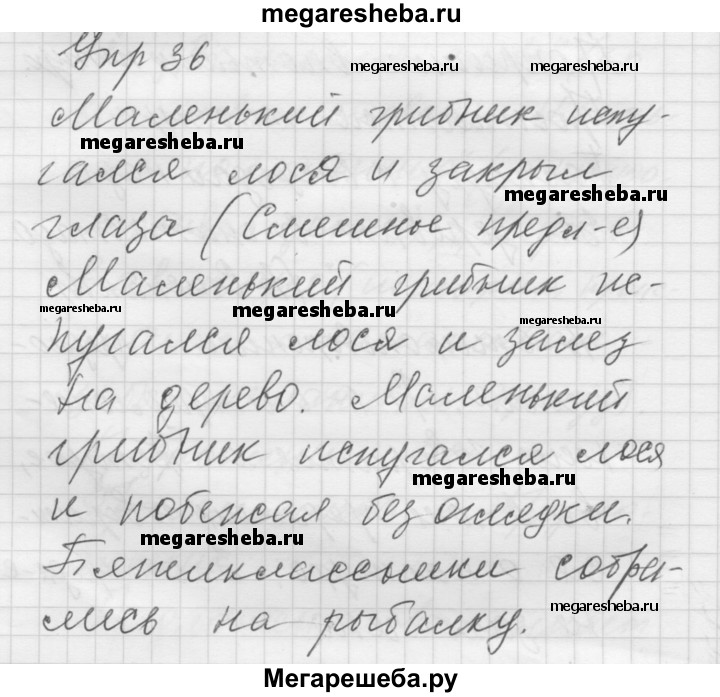 megaresheba.ru
Упр 36
megaresheba.ru megaresheba.ru
Маленький грибник испу-
megaresheba.ru
гался лося и закрыл
megaresheba.ru
глаза (Смешное предл-е)
Маленький грибник ис-
megaresheba.ru megaresheba.ru megaresheba.ru
пугался лося и залез
на дерево. Маленький
грибник испугался лося
megaresheba.ru
и побежал без оглядки.
megaresheba.ru
Пятиклассники собра-
megaresheba.ru
лись на рыбалку.
Мегарешеба.ру